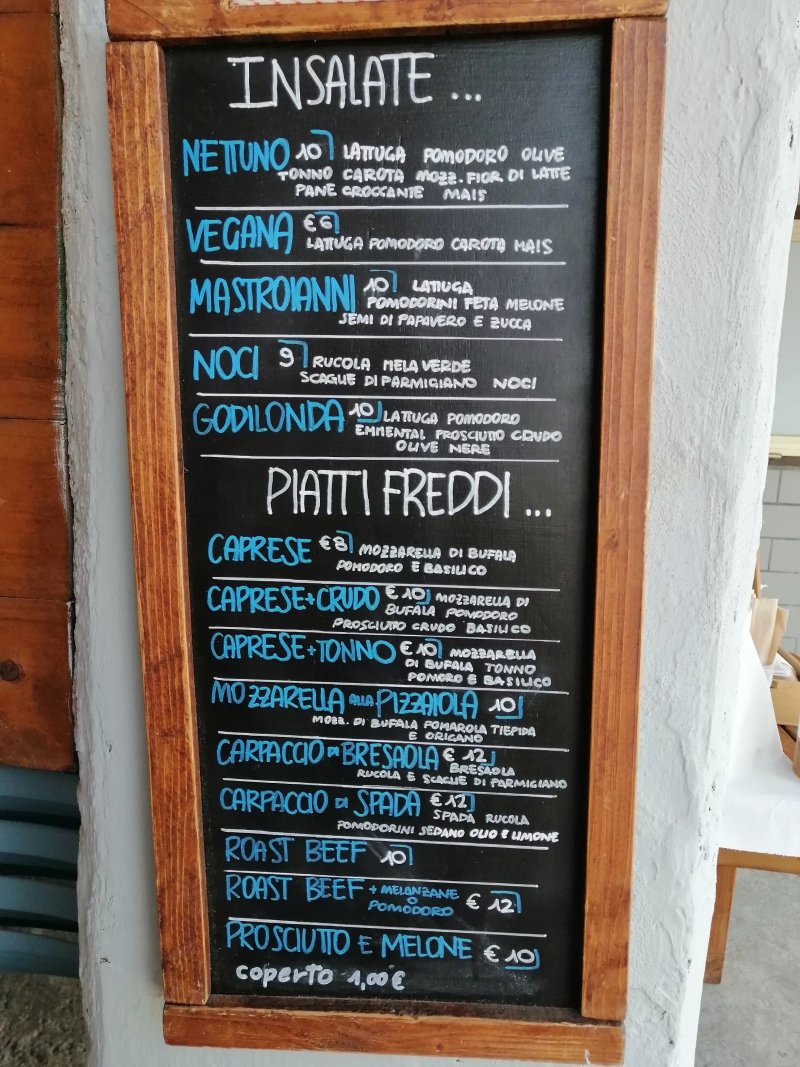 INSALATE ...
NETTUNO 10 LATTUGA POMODORO OLIVE
TONNO CAROTA MOZZ. FIOR DI LATTE
PANE CROCCANTE MAIS
VEGANA €6
LATTUGA POMODORO CAROTA MAIS
MASTROIANNI 10 LATTUGA
POMODORINI FETA MELONE
SEMI DI PAPAVERO E ZUCCA
NOCI 9 RUCOLA MELA VERDE
SCAGLIE DI PARMIGIANO NOCI
GODILONDA 10 LATTUGA POMODORO
EMMENTAL PROSCIUTTO CRUDO
OLIVE NERE
PIATTI FREDDI ...
CAPRESE €8 MOZZARELLA DI BUFALA
POMODORO E BASILICO
CAPRESE+CRUDO €10 MOZZARELLA DI
BUFALA POMODORO
PROSCIUTTO CRUDO BASILICO
CAPRESE+TONNO €10 MOZZARELLA
DI BUFALA TONNO
POMORO E BASILICO
MOZZARELLA ALLA PIZZAIOLA 10
MOZZ. DI BUFALA POMAROLA TIEPIDA
E ORIGANO
CARPACCIO DI BRESAOLA € 12
BRESAOLA
RUCOLA E SCAGLIE DI PARMIGIANO
CARPACCIO DI SPADA €12
SPADA RUCOLA
POMODORINI SEDANO OLIO E LIMONE
ROAST BEEF 10
ROAST BEEF + MELANZANE
O
POMODORO € 12
PROSCIUTTO E MELONE € 10
coperto 1,00€